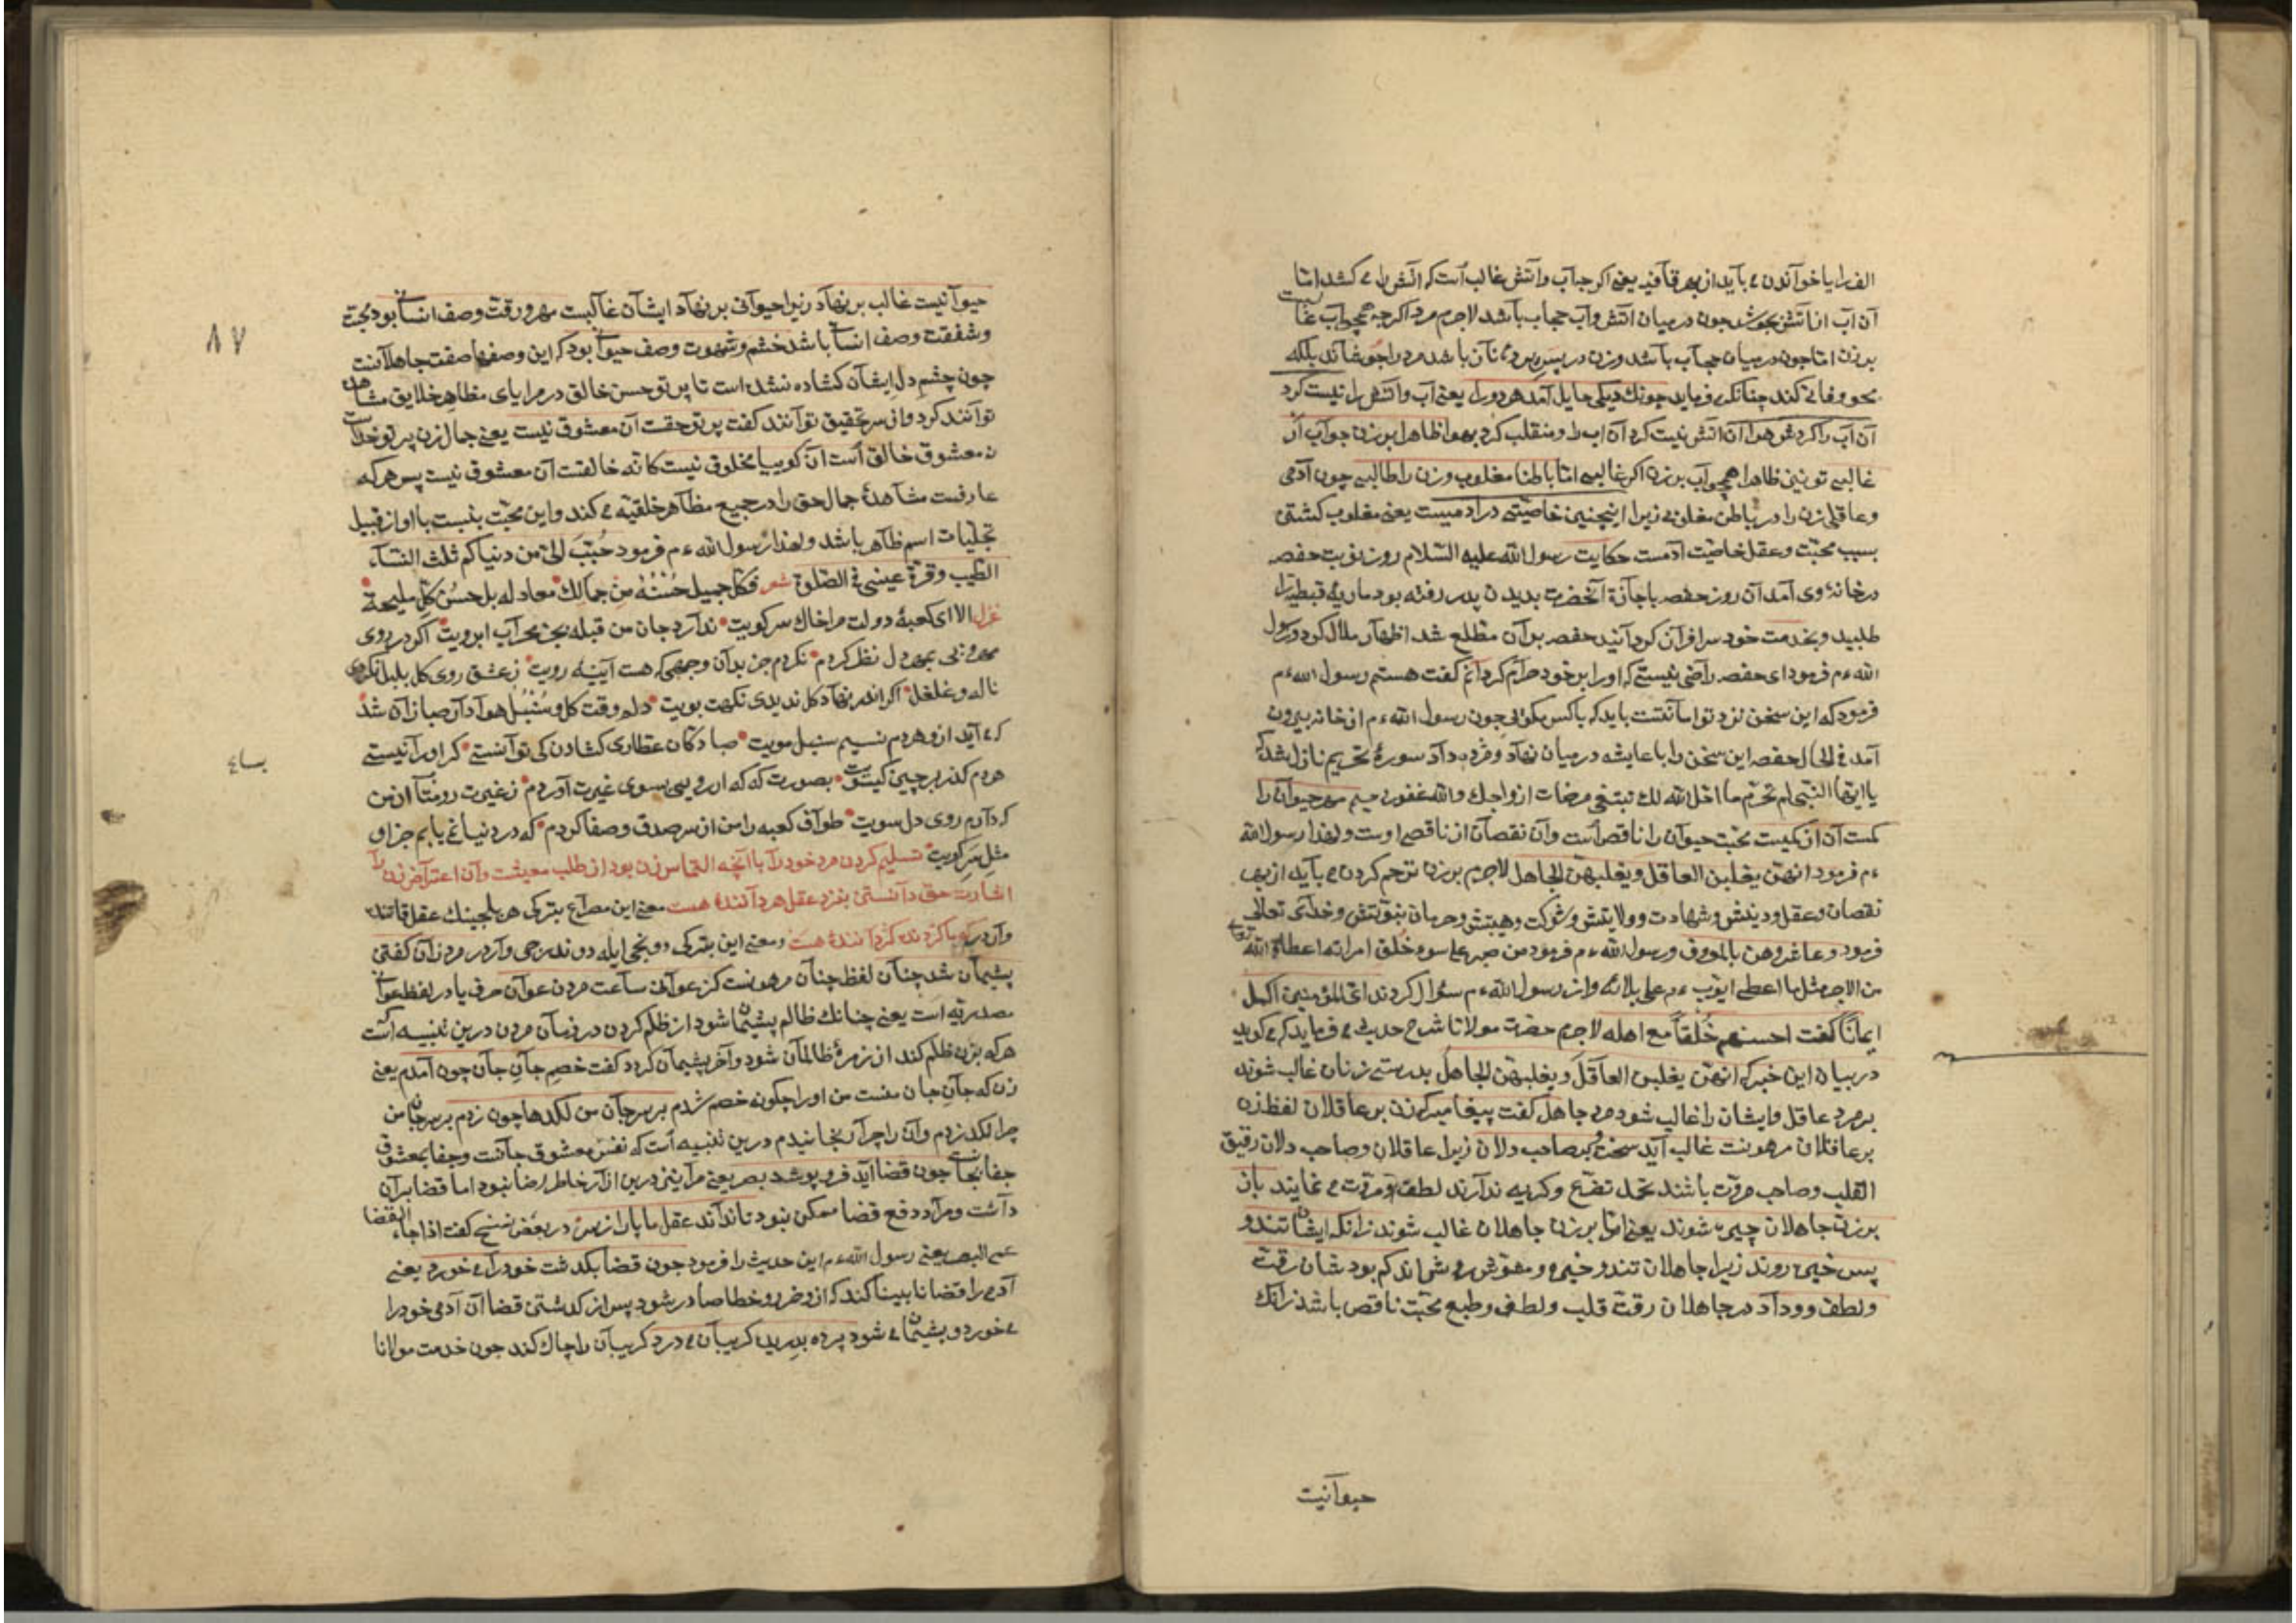 الف را یا خواندن می باید از بهر قافیه یعنی اگر چه آب وآتش غالب است که آتش را می کشد اما
آن آب از آتش بجوشد چون در میان آتش وآب حجاب باشد لاجرم مرد اگر چه همچو آب غالبست
بر زن اما چون در میان حجاب باشد وزن در پس پرده نهان باشد مرد را جوشاند بلکه
محو وفانی کند چنانکه می فرماید چونک دیکی حایل آمد هر دو را یعنی آب وآتش را نیست کرد
آن آب را کردش هوا آن آتش نیست کرد آن آب را ومنقلب کرد بهوا ظاهرا بر زن چو آب ار
غالبی تو یعنی ظاهرا همچو آب بر زن اگر غالبی اما باطنا مغلوب وزن را طالبی چون آدمی
وعاقلی زن را در باطن مغلوبی زیرا اینچنین خاصیتی در آدمیست یعنی مغلوب کشتن
بسبب محبت وعقل خاصیت آدمست حکایت رسول الله علیه السلام روز نوبت حفصه
در خانهٔ وی آمد آن روز حفصه باجازة آنحضرت بدیدن پدر رفته بود ماریهٔ قبطیه را
طلبید وبخدمت خود سرافراز کردانید حفصه بر آن مطلع شد اظهار ملال کرد ورسول
الله ءم فرمود ای حفصه راضی نیستی که او را بر خود حرام کردانم کفت هستم رسول الله ءم
فرمود که این سخن نزد تو امانتست باید که با کس نکویی چون رسول الله ءم از خانه بیرون
آمد فی الحال حفصه این سخن را با عایشه در میان نهاد ومژده داد سورهٔ تحریم نازل شد که
یا ایها النبی لم تحرم ما احل الله لک تبتغی مرضات ازواجک والله غفور رحیم مهر حیوان را
کمست آن از کمیست محبت حیوان را ناقص است وآن نقصان از ناقصی اوست ولهذا رسول الله
ءم فرمود انهن یغلبن العاقل ویغلبهن الجاهل لاجرم بر زن ترحم کردن می باید از بهر
نقصان وعقل ودینش وشهادت وولایتش وشرکت وهیبتش وحرمان نبوتش وخدای تعالی
فرمود وعاشروهن بالمعروف ورسول الله ءم فرمود من صبر علی سوء خلق امراته اعطاه الله تعالی
من الاجر مثل ما اعطی ایوب ءم علی بلائه واز رسول الله ءم سؤال کردند ای المؤمنین اکمل
ایمانًا کفت احسنهم خُلقاً مع اهله لاجرم حضرت مولانا شرح حدیث می فرماید که می کوید
در بیان این خبر که انهن یغلبن العاقل ویغلبهن الجاهل بدرستی زنان غالب شوند
بر مرد عاقل وایشان را غالب شود مرد جاهل کفت پیغامبر که زن بر عاقلان لفظ زن
بر عاقلان مرهونست غالب آید سخت وبر صاحب دلان زیرا عاقلان وصاحب دلان رقیق
القلب وصاحب مروت باشند تحمل تضرع وکریه ندارند لطف ومروت می نمایند باز
بر زن جاهلان چیره شوند یعنی اما بر زن جاهلان غالب شوند زانکه ایشان تند و
بس خیره روند زیرا جاهلان تند وخیره ومغوش روشی اند کم بود شان رقت
ولطف ووداد در جاهلان رقت قلب ولطف وطبع محبت ناقص باشد زانک
حیوانیت
٨٧
حیوانیست غالب بر نهاد زیرا حیوانی بر نهاد ایشان غالبست مهر ورقت وصف انسانی بود محبت
وشفقت وصف انسانی باشد خشم وشهوت وصف حیوانی بود که این وصفها صفت جاهلانست
چون چشم دل ایشان کشاده نشده است تا پرتو حسن خالق در مرایای مظاهر خلایق مشاهده
توانند کرد واز سر تحقیق توانند کفت پرتو حقست آن معشوق نیست یعنی جمال زن پرتو خداست
نه معشوق خالق است آن کوییا مخلوق نیست کانه خالقست آن معشوق نیست پس هر که
عارفست مشاهدهٔ جمال حق را در جمیع مظاهر خلقیه می کند واین محبت بنسبت با او از قبیل
تجلیات اسم ظاهر باشد ولهذا رسول الله ءم فرمود حُبّبَ الیّ من دنیاکم ثلث النساء
الطیب وقرة عینی فی الصلوة شعر فکل جمیل حُسْنُهُ مِن جمالك معار له بل حسنُ کلِ ملیحة
غزل الا ای کعبهٔ دولت مرا خاك سر کویت ندارد جان من قبله بجز محراب ابرویت اکر در روی
مهرویی بمهر دل نظر کردم نکردم جز بدان وجهی که هست آیینه رویت ز عشق روی کل بلبل نکردی
ناله وغلغل اکر اندر نهاد کل ندیدی نکهت بویت دلم وقت کل وسُنْبُل هوادار صبا زان شد
که می آید ازو هر دم نسیم سنبل مویت صبا دکان عطاری کشادن کی توانستی کر او را نیستی
هر دم کذر بر چین کیسویت بصورت که که ار رویی بسوی غیرت آوردم ز غیرت رو متاب از من
که دارم روی دل سویت طواف کعبه را من از سر صدق وصفا کردم که در دنیا نمی یابم جز او
مثل سر کویت تسلیم کردن مرد خود را با آنچه التماس زن بود از طلب معیشت وآن اعتراض زن را
اشارت حق دانستن بنزد عقل هر داننده هست معنی این مصراع بترکی هر بلجینك عقل قاتنده
وار در که با کردنده کردانندهٔ هست ومعنی این بترکی دونجی ایله دوندرجی واردر مرد زان کفتن
پشیمان شد چنان لفظ چنان مرهونست کز عوانی ساعت مردن عوان حرف یا در لفظ عوانی
مصدریه است یعنی چنانك ظالم پشیمان شود از ظلم کردن در زمان مردن درین تنبیه است
هر که بزن ظلم کند از زمرهٔ ظالمان شود وآخر پشیمان کردد کفت خصمِ جانِ جان چون آمدم یعنی
زن که جانِ جان منست من او را چکونه خصم شدم بر سر جان من لکدها چون زدم بر سر جان من
چرا لکد زدم وآن را چرا رنجانیدم درین تنبیه است که نفس معشوق جانست وجفا بمعشوق
جفا بجانست چون قضا آید فرو پوشد بصر یعنی مرا نیز درین آزار خاطر رضا نبود اما قضا بر آن
داشت ومرا در دفع قضا ممکن نبود تا نداند عقل ما پا را ز سر در بعض نسخ کفت اذا جاء القضا
عمی البصر یعنی رسول الله ءم این حدیث را فرمود چون قضا بکذشت خود را می خورد یعنی
آدمی را قضا نابینا کند که ازو ضرر وخطا صادر شود پس از کذشتن قضا آن آدمی خود را
می خورد وپشیمان می شود پرده بدریده کریبان می درد کریبان را چاك کند چون خدمت مولانا